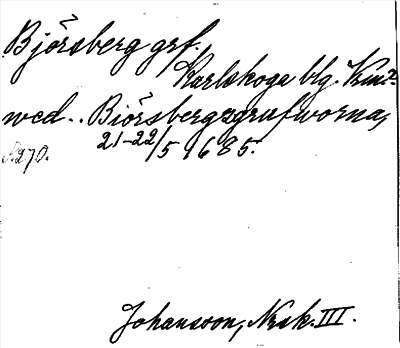 Björsberg grf.
Karlskoga blg. Kun?
wed.. Biörsbergzgrufworna,
21-22/5 1685.
S.270.
Johansson, Norsk. III.